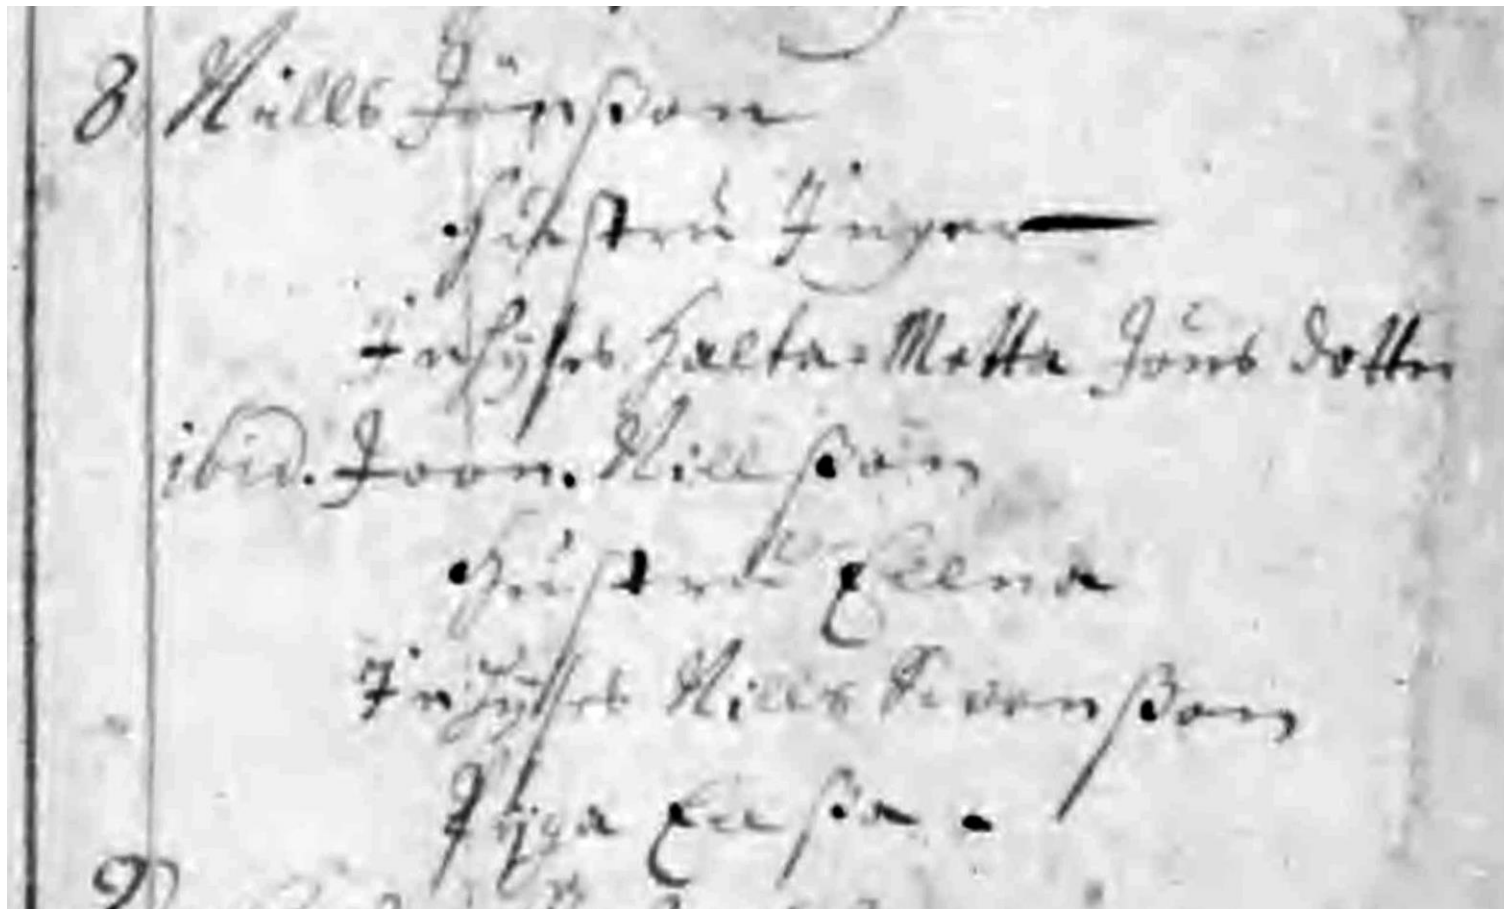 8 Nills Jönßon
Hustru Inger
Inhyses halta Metta Jöns dotter
ibid. Joon. Nillßon
Hustru Ellna
Inhyses Nills Svenßon
Pyga Elßa
9